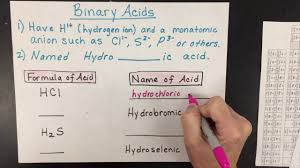 Binary Acids
1) Have H¹⁺ (hydrogen ion) and a monatomic
anion such as Cl¹⁻, S²⁻, P³⁻ or others.
2) Named Hydro ______ ic acid.
Formula of Acid Name of Acid
HCl hydrochloric
____ Hydrobromic
H₂S ____
____ Hydroselenic